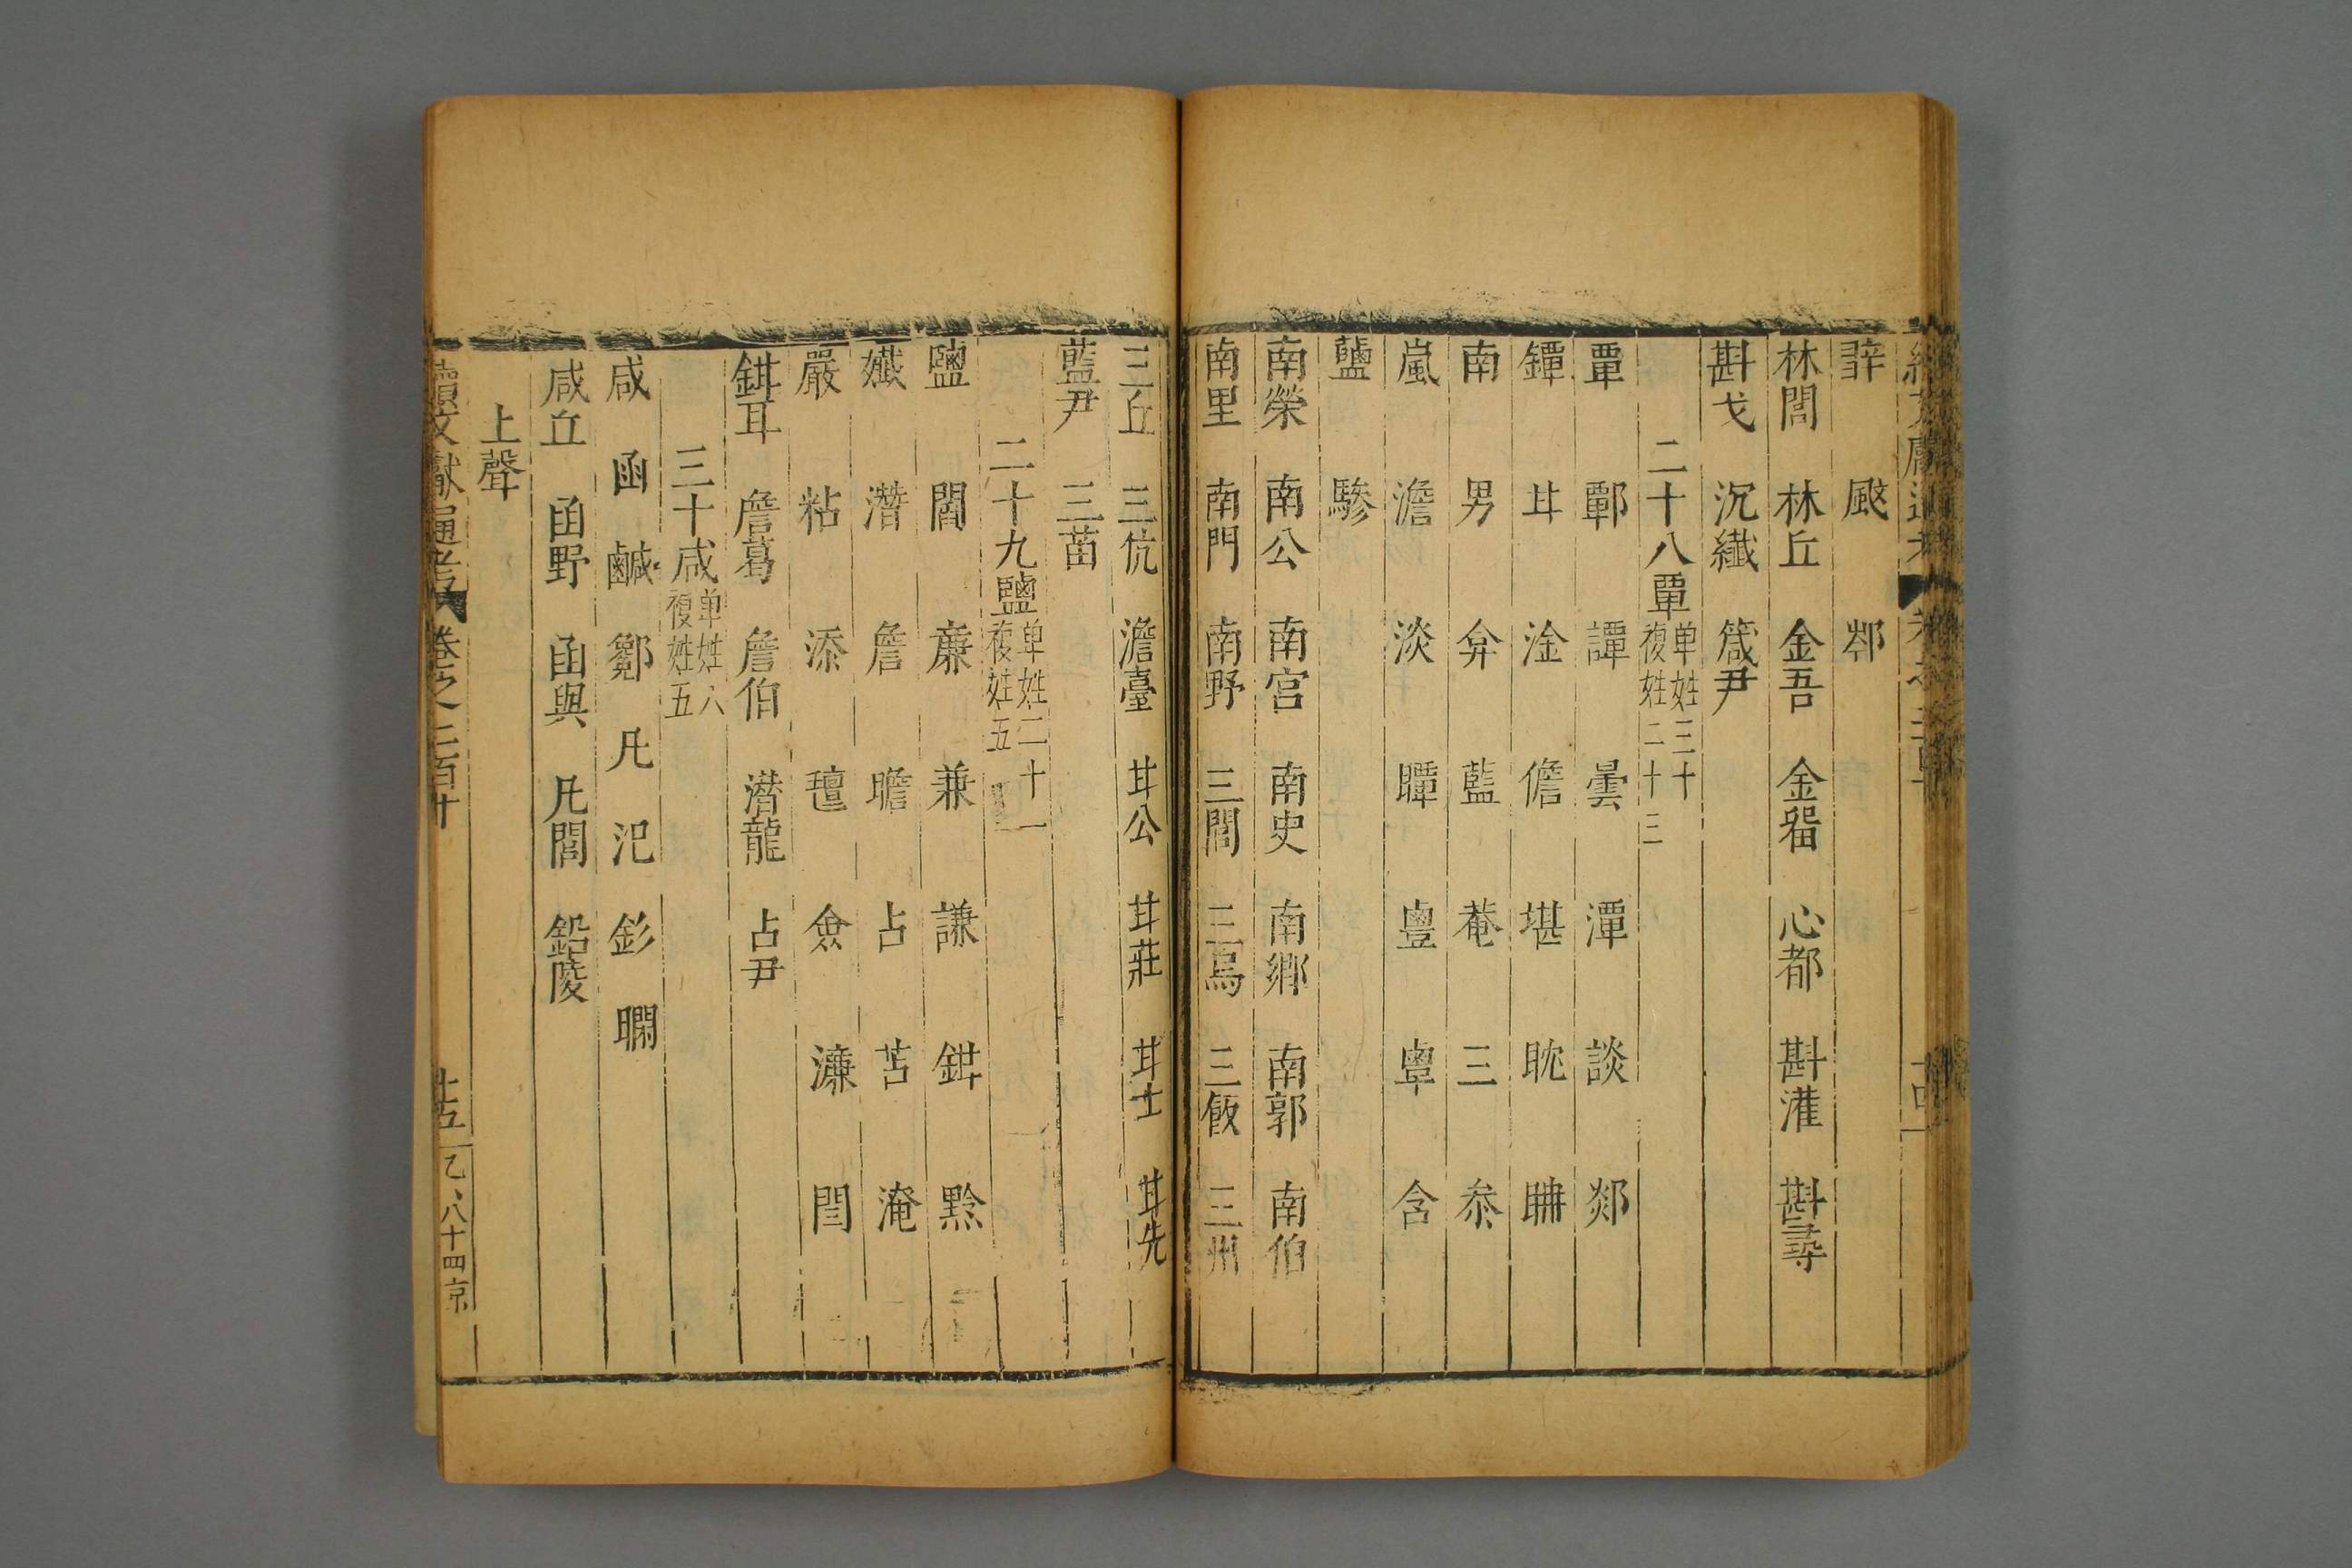 林閭 林丘 金吾 金留 心都 斟灌 斟尋
斟戈 沉纎 箴尹
二十八覃 单姓三十 複姓二十三
覃 鄿 譚 曇 潭 談 郯
鐔 甘 淦 儋 堪 耽 聃
南 男 弇 藍 菴 三 叅
嵐 澹 淡 含
驂
南榮 南公 南宮 南史 南鄉 南郭 南伯
南里 南門 南野 三閭 三烏 三飯 三州
三丘 三伉 澹臺 甘公 甘莊 甘士 甘先
藍尹 三苗
二十九鹽 单姓二十一 複姓五
鹽 閻 亷 兼 謙 鉗 黔
孅 潛 詹 瞻 占 苫 淹
嚴 粘 添 僉 濂 閆
鉗耳 詹葛 詹伯 潛龍 占尹
三十咸 单姓六 複姓五
咸 函 鹹 凡 氾
咸丘 函野 函與 凡閭 鉛陵
上聲
續文獻通考 卷之二百十 十五 乙八十四京